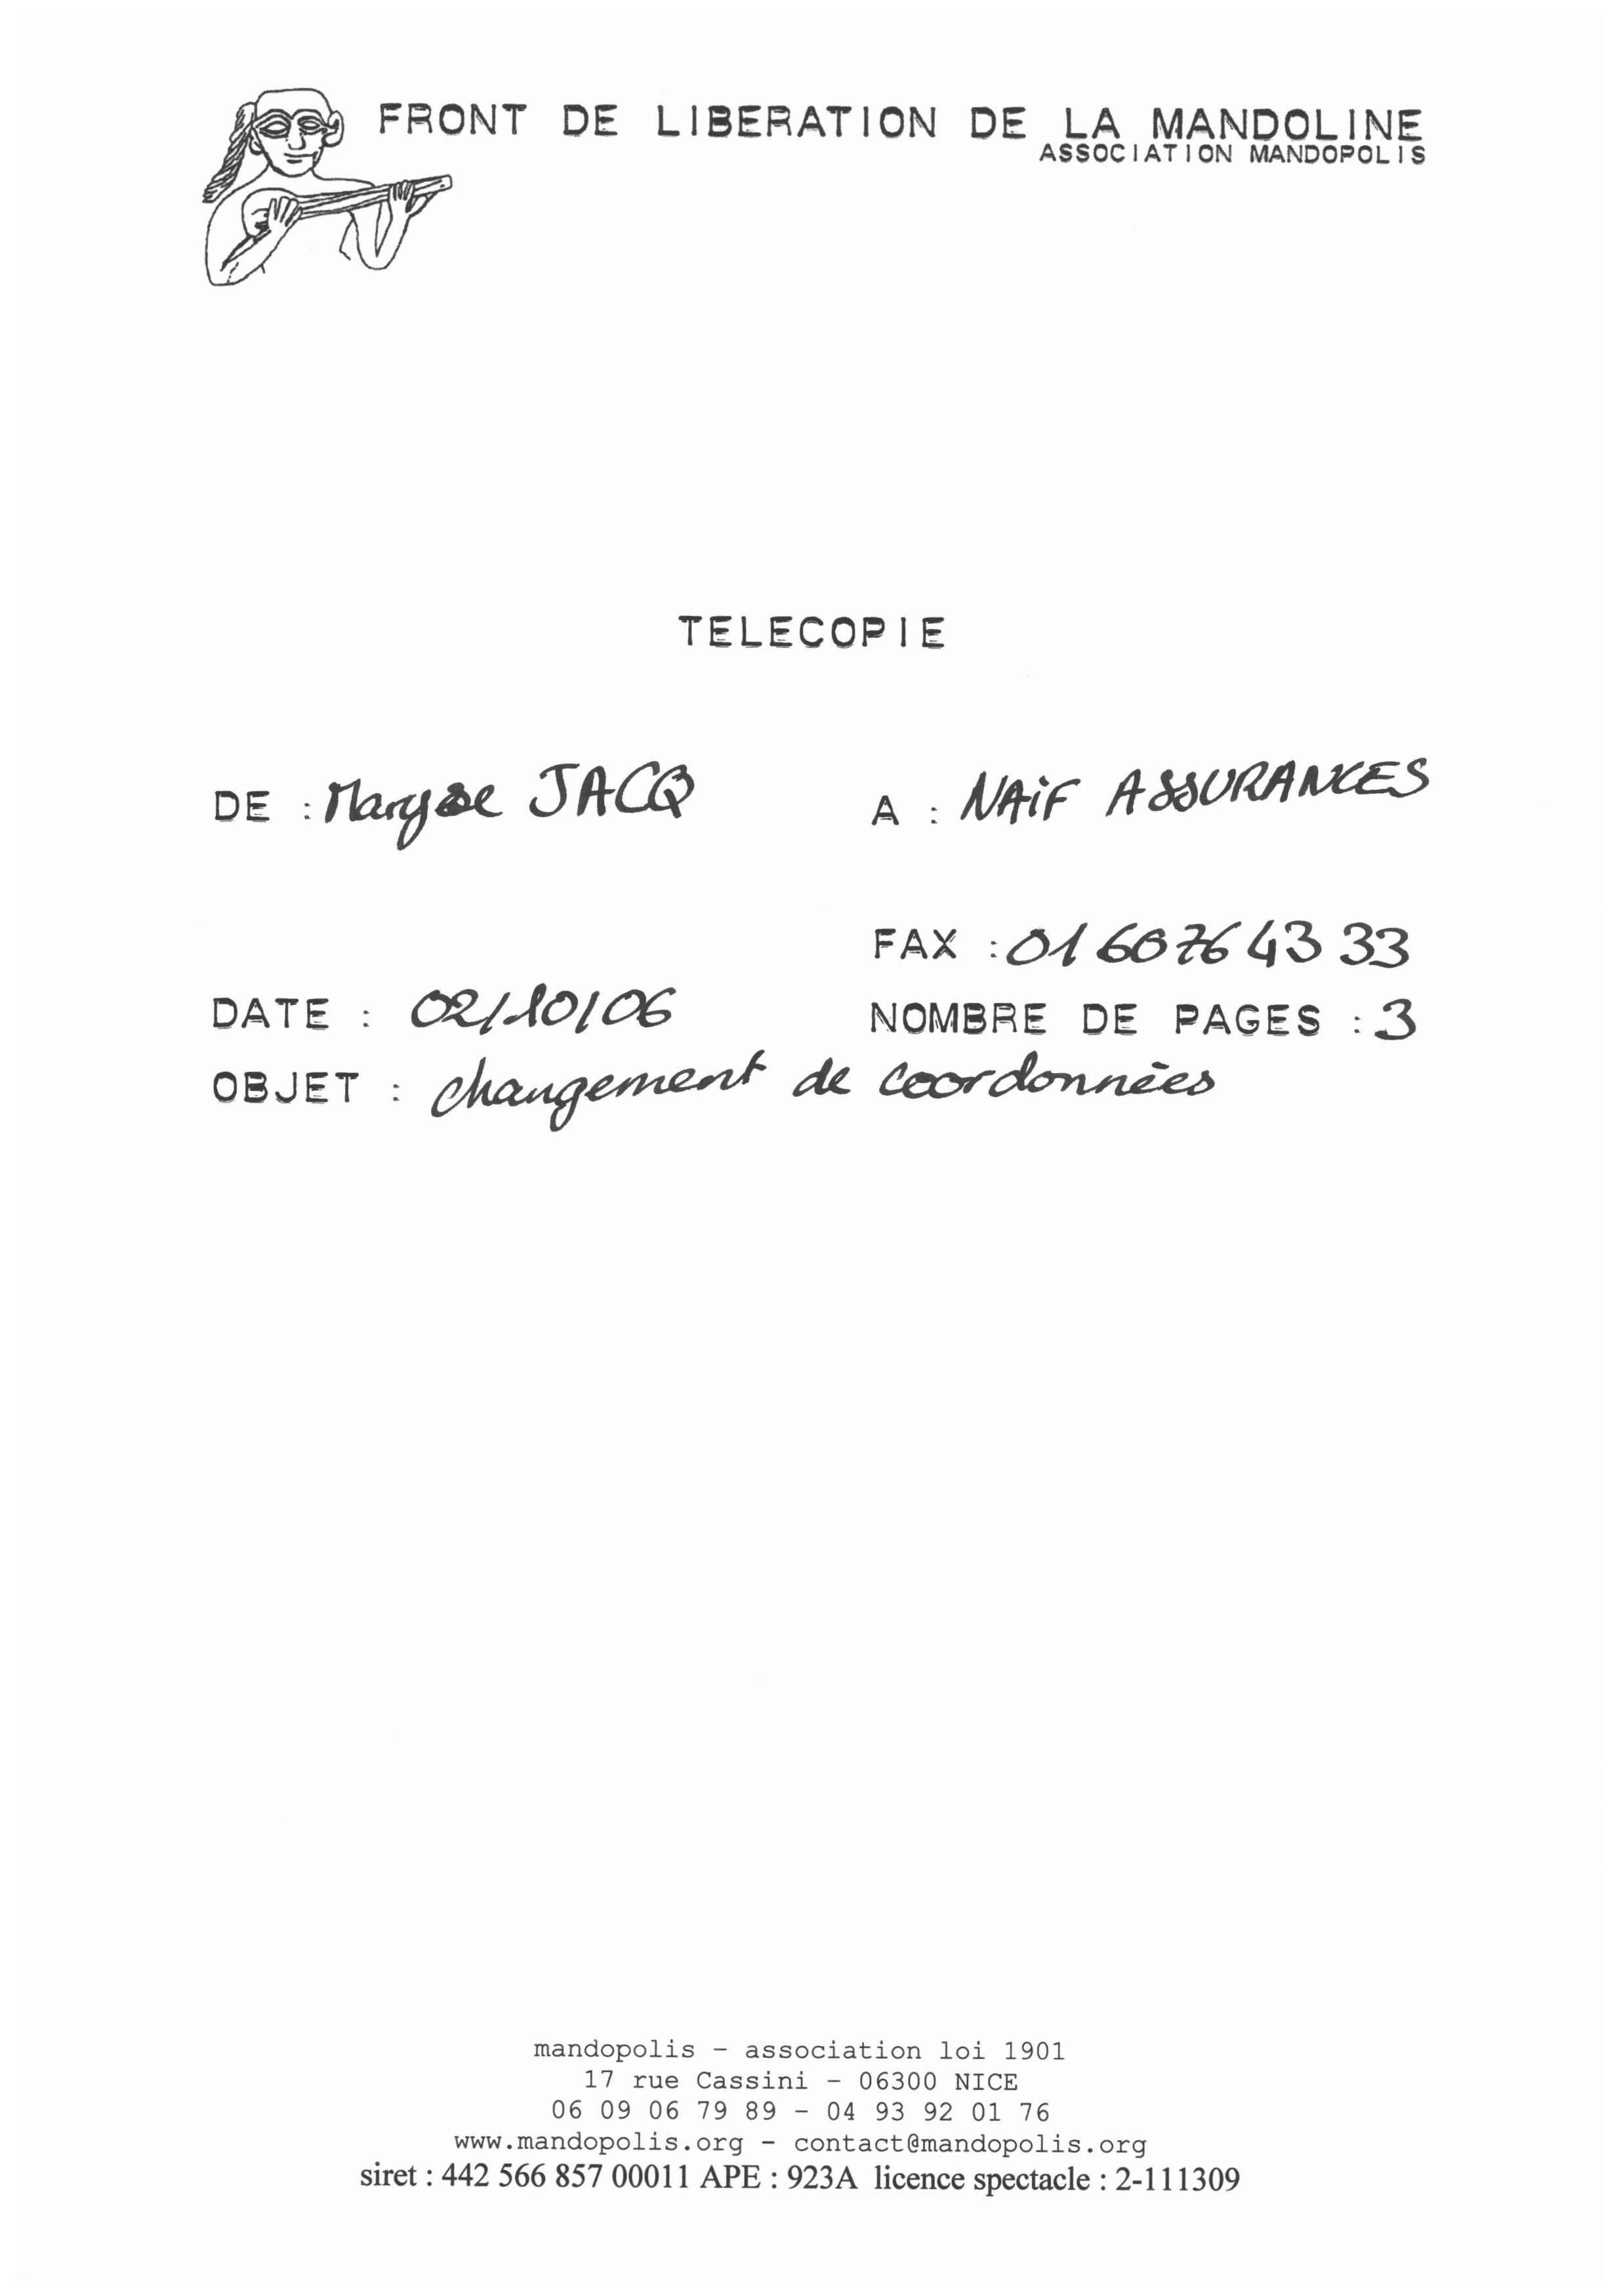 FRONT DE LIBERATION DE LA MANDOLINE
ASSOCIATION MANDOPOLIS
TELECOPIE
DE : Maryse JACQ
A : NAiF ASSURANCES
FAX : 01 60 76 43 33
DATE : 02/10/06
NOMBRE DE PAGES : 3
OBJET : changement de coordonnées
mandopolis - association loi 1901
17 rue Cassini - 06300 NICE
06 09 06 79 89 - 04 93 92 01 76
www.mandopolis.org - contact@mandopolis.org
siret : 442 566 857 00011 APE : 923A licence spectacle : 2-111309